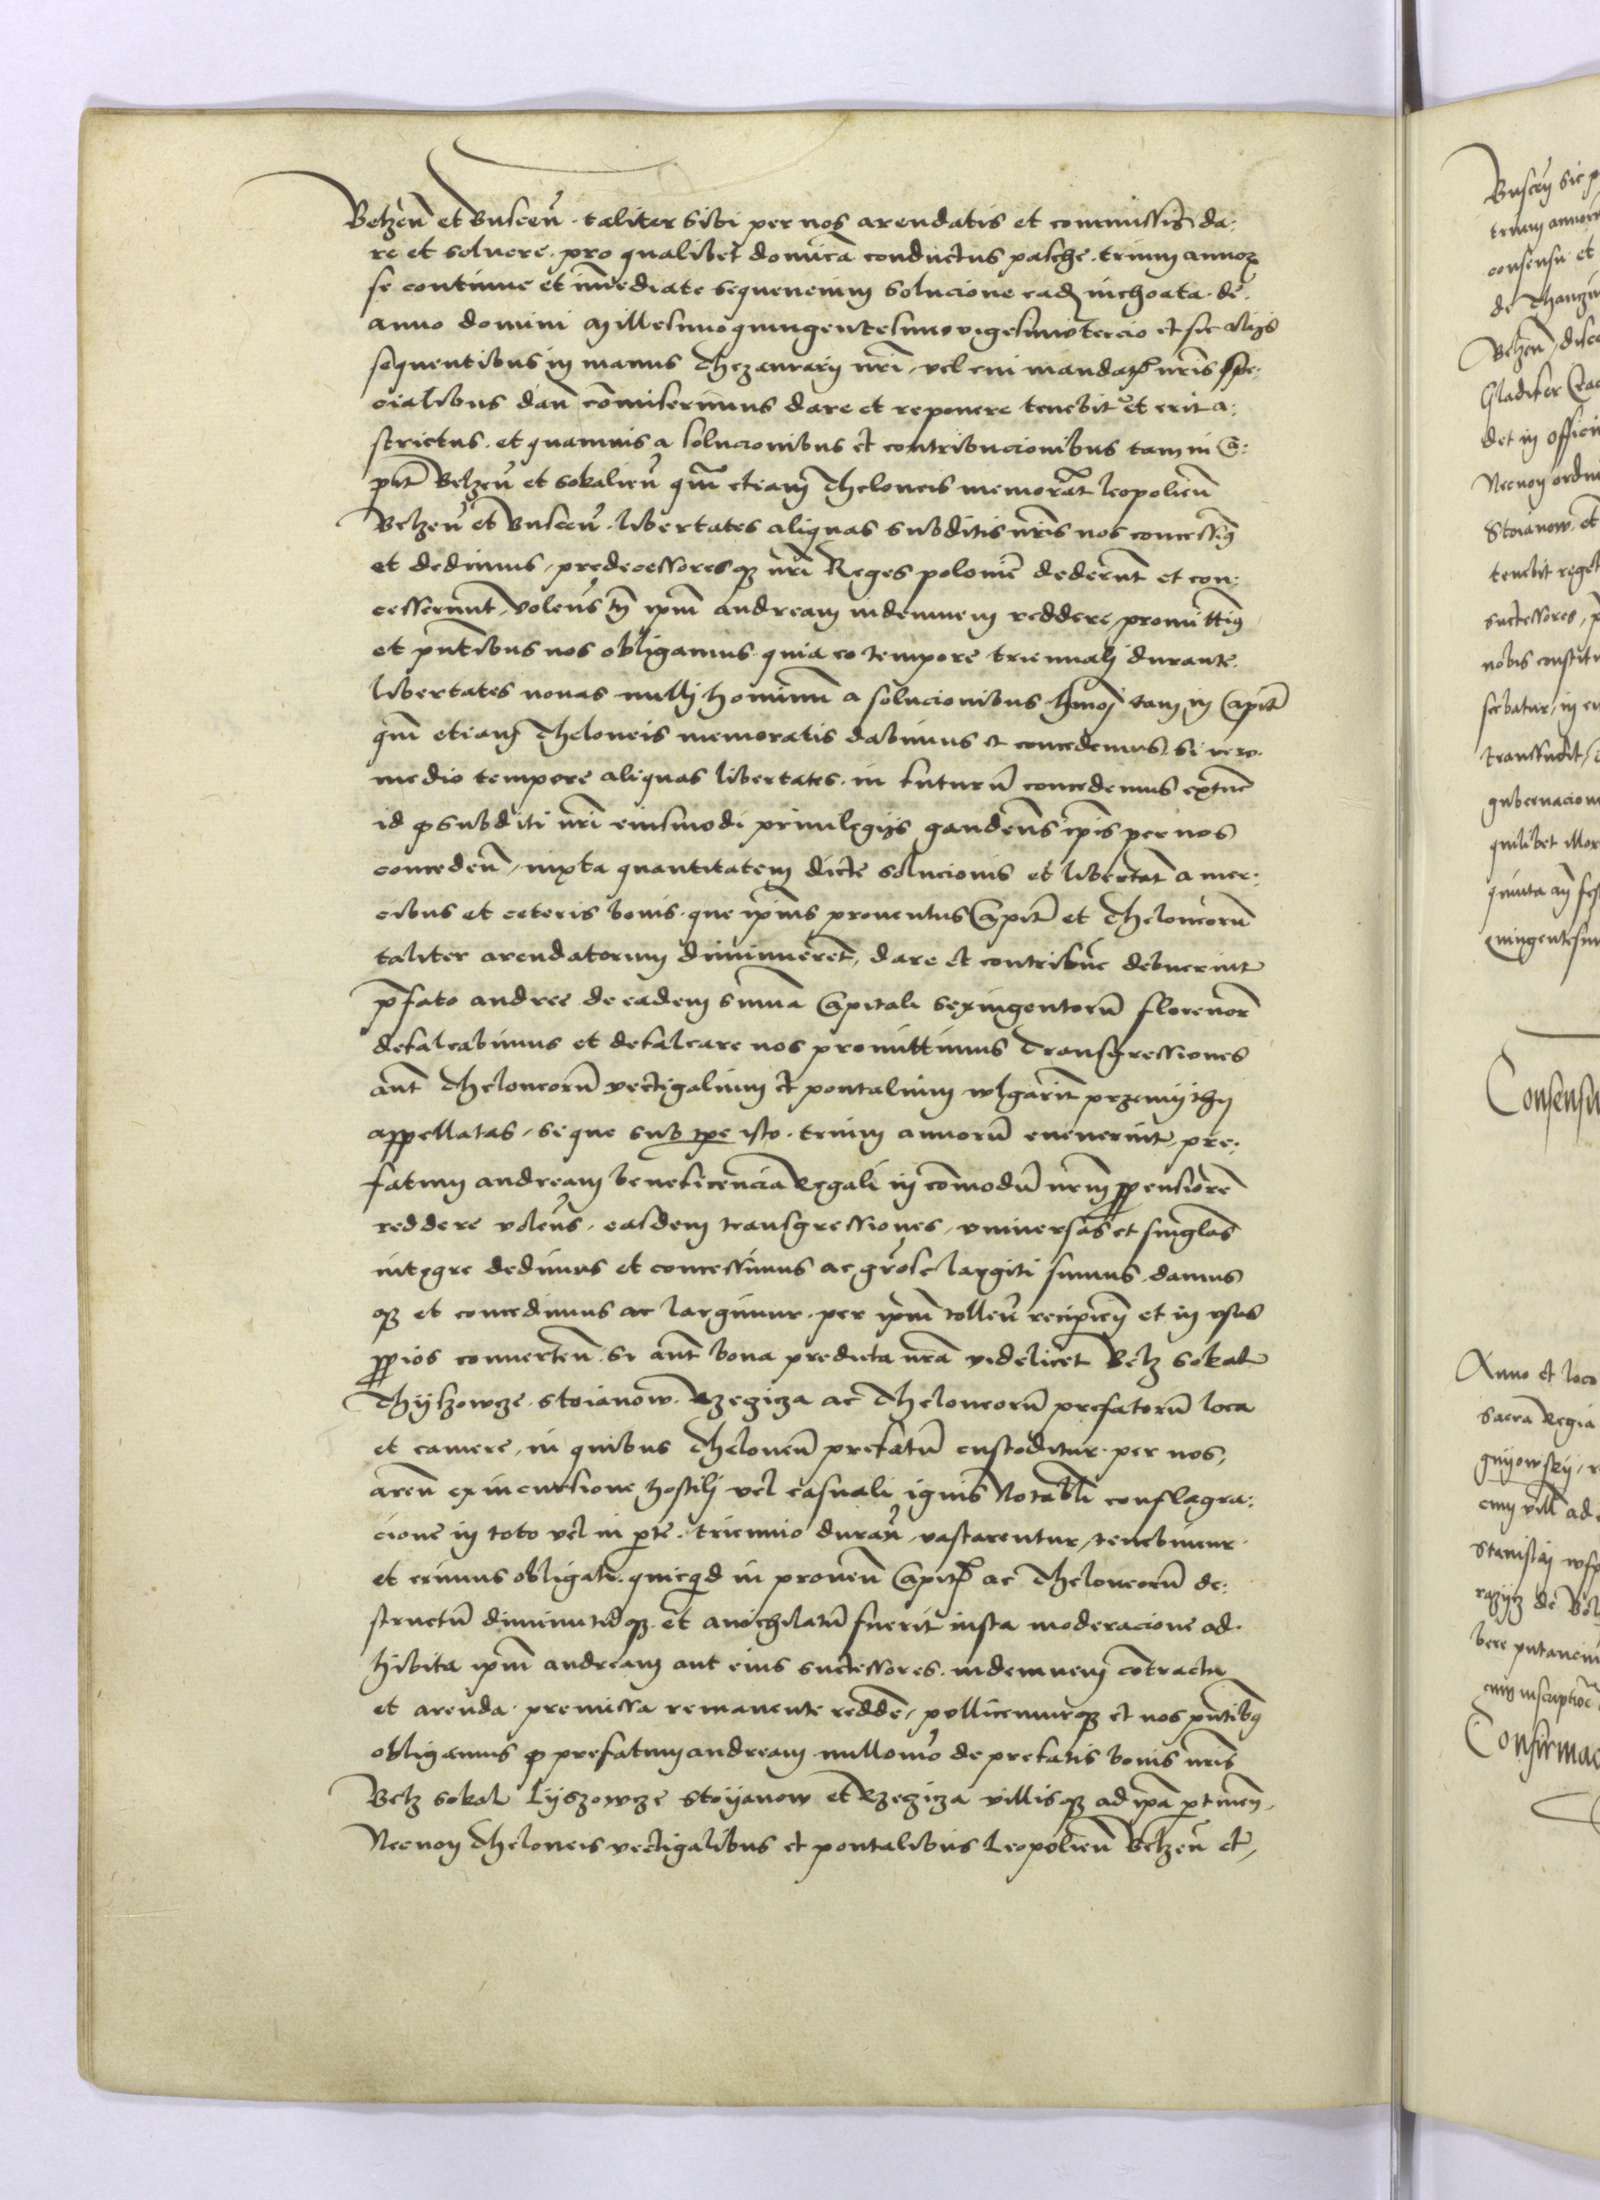 Belzeñ et Busceñ taliter sibi per nos arendatis et commissis da:
re et solvere pro qualibet domīca conductus pasche trium annoꝝ
se continue et īmediate sequencium solucione eadꝫ inchoata de
anno domini Millesimoquingentesimovigesimotercio et sic alijs
sequentibus in manus Thezaurarij nr̄i vel cui mandatꝭ nr̄is spe:
cialibus dan̄ cōmiserimus dare et reponere tenebit̄ et erit a:
strictus et quamvis a solucionibus et contribucionibus tam in Ca:
pit̄ Belzeñ et Sokalieñ qm̄ etiam Theloneis memorat̄ Leopolieñ
Belzeñ et Busceñ libertates aliquas subditis nr̄is nos concessimꝰ
et dedimus predecessoresqꝫ nr̄i Reges polonie dederunt et con:
cesserunt volen̄s tn̄ ip̄m andream indemnem reddere promittimꝰ
et pn̄tibus nos obligamus quia eo tempore triennali durante
libertates novas nulli hominū a solucionibus hmōi tam in Capit̄
qm̄ etiam Theloneis memoratis dabimus et concedemus, Si vero
medio tempore aliquas libertates in futurū concedemus extunc
id qꝫ subditi nr̄i eiusmodi privilegijs gauden̄s ip̄is per nos
conceden̄ iuxta quantitatem dicte solucionis et libertat̄ a mer:
cibus et ceteris bonis que ip̄ius proventus Capit̄ et Theloneorū
taliter arendatorum diminuerent, dare et contribue͞ debuerint
p̄fato andree de eadem sum̄a Capitali sexingentorū florenor̄
defalcabimus et defalcare nos promittimus Transgressiones
aut̄ Theloneorū vectigalium et pontalium vlgarit̄ przemijthij
appellatas, si que sub tp̄e isto trium annorū evenerint, pre:
fatum andream beneficencia Regali in cōmodū nr̄m ꝓpensiorē
reddere volen̄s, easdem transgressiones, vniversas et singlas
integre dedimus et concessimus ac gr̄ose largiti sumus damus
qꝫ et concedimus ac largimur per ip̄m tollen̄ recipien̄ et in vsus
ꝓprios converten̄. Si aut̄ bona predicta nr̄a videlicet Belz Sokal
Thijszowcze Stoianow Rzeczicza ac Theloneorū prefatorū loca
et camere, in quibus Theloneū prefatū custoditur per nos,
aren̄ ex incursione hostili vel casuali ignis Notabli conflagra:
cione in toto vel in pte triennio duran̄ vastarentur, tenebimur
et erimus obligati quicqd in proven̄ Capitꝭ ac Theloneorū de:
structū diminutūqꝫ et anichilatū fuerit iusta moderacione ad
hibita ip̄m andream aut eius successores indemnem cōtractu
et arenda premissa remanente redde͞, pollicemurqꝫ et nos pn̄tibꝰ
obligamus qꝫ prefatum andream nullomō de prefatis bonis nr̄is
Belz Sokal Tijszowcze Stoijanow et Rzeczicza villisqꝫ ad ip̄a ptinen̄
Necnon Theloneis vectigalibus et pontalibus Leopolieñ Belzeñ et
Consensu
Anno et loco
Sacra Regia
Confirmac